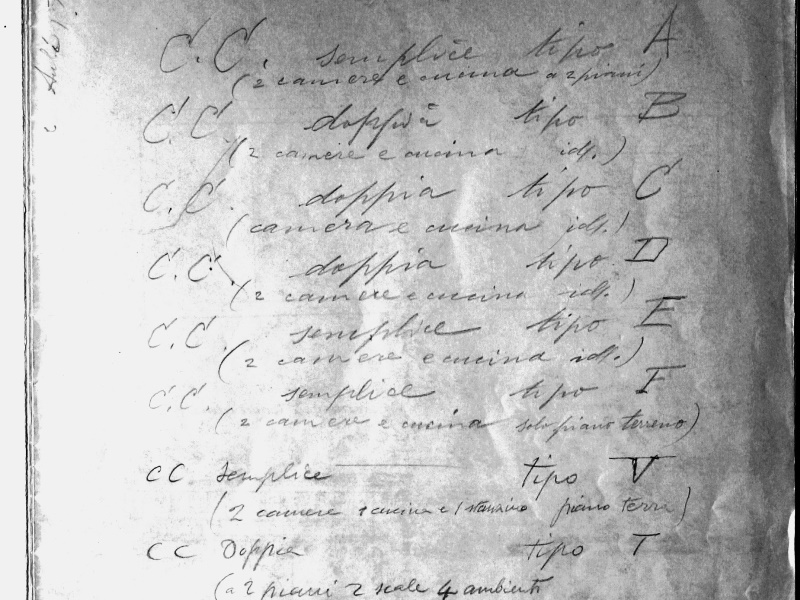 C.C. semplice tipo A
(2 camere e cucina a 2 piani)
C.C. doppia tipo B
(2 camere e cucina id.)
C.C. doppia tipo C
(camera e cucina id.)
C.C. doppia tipo D
(2 camere e cucina id.)
C.C. semplice tipo E
(2 camere e cucina id.)
C.C. semplice tipo F
(2 camere e cucina solo piano terreno)
CC semplice tipo V
(2 camere e cucina e 1 stanzino piano terra)
CC Doppia tipo T
(a 2 piani 2 scale 4 ambienti